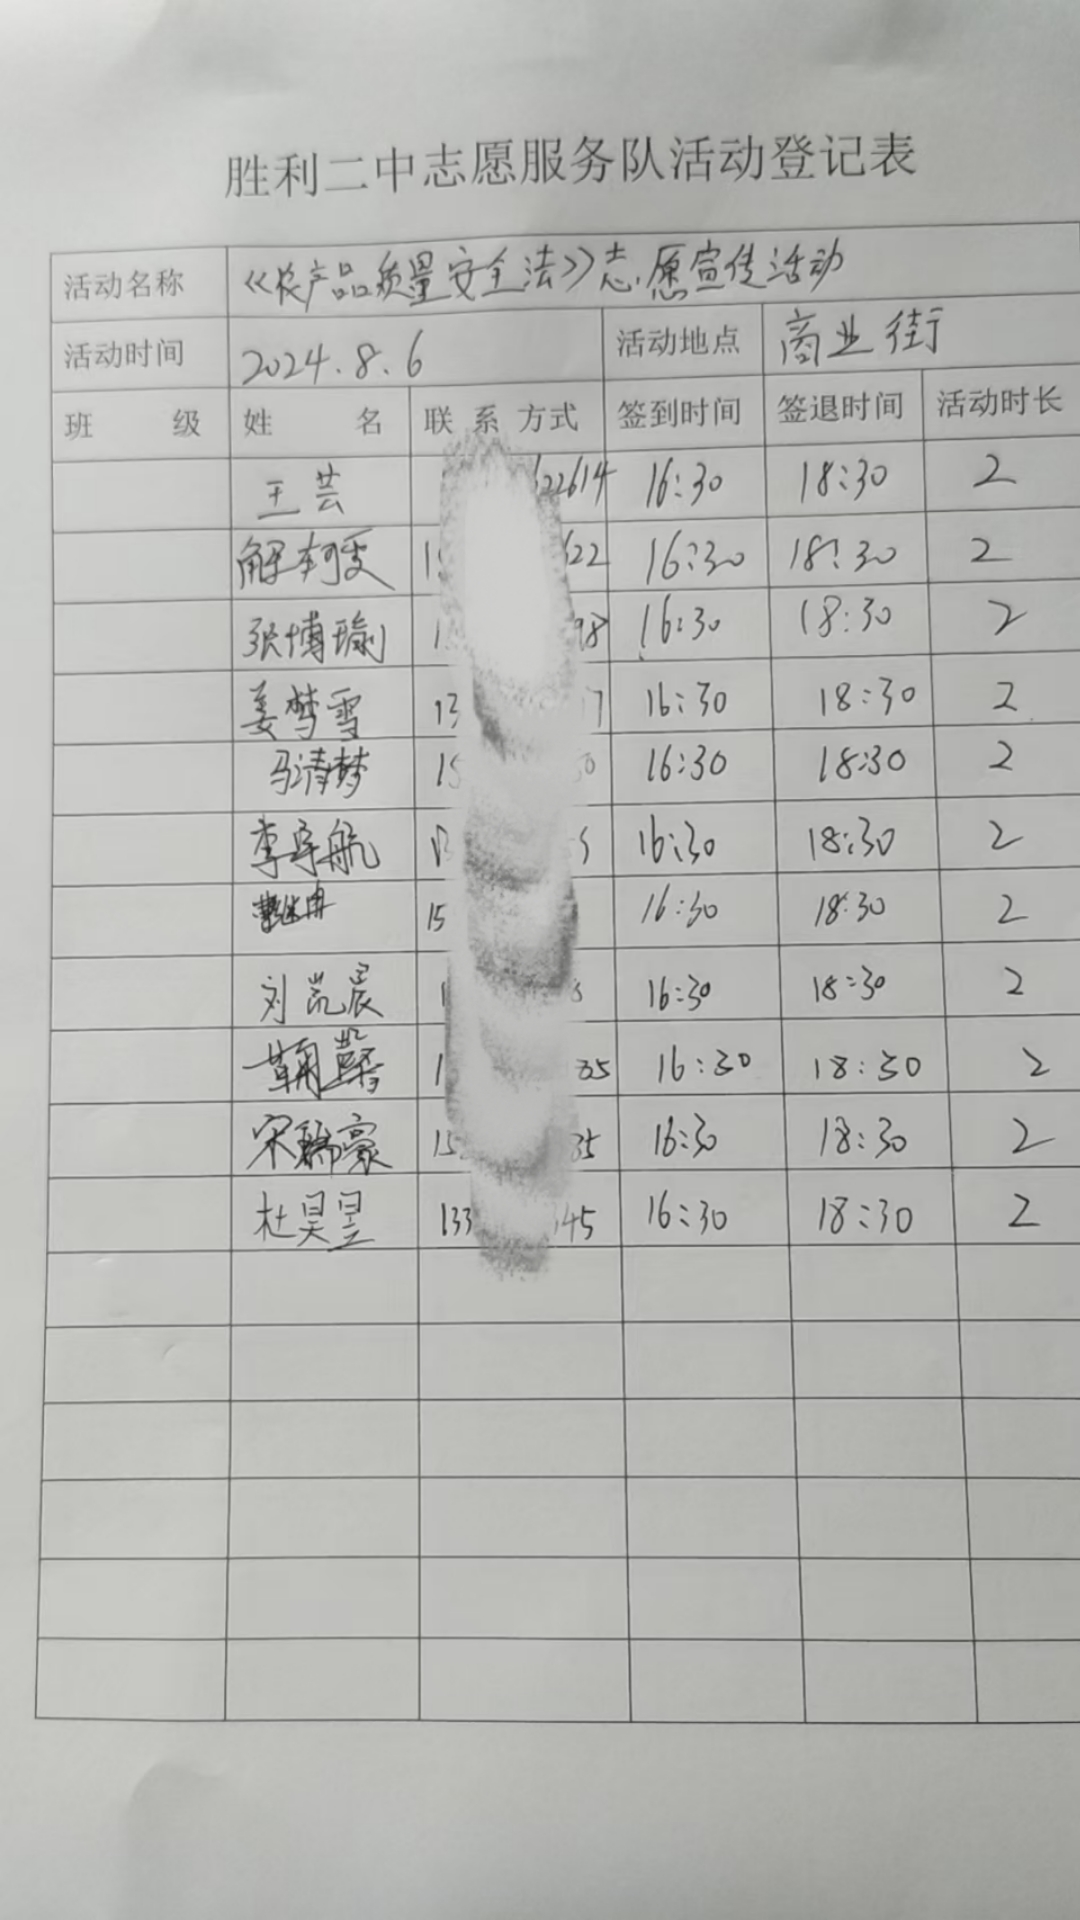 胜利二中志愿服务队活动登记表
活动名称 《农产品质量安全法》志愿宣传活动
活动时间 2024.8.6 活动地点 商业街
班 级 姓 名 联系方式 签到时间 签退时间 活动时长
王芸 22614 16:30 18:30 2
解轲雯 1 622 16:30 18:30 2
张博瑜 1 98 16:30 18:30 2
姜梦雪 13 7 16:30 18:30 2
马清梦 15 0 16:30 18:30 2
李宇航 13 5 16:30 18:30 2
15 16:30 18:30 2
刘凯晨 1 16:30 18:30 2
1 35 16:30 18:30 2
宋瑞豪 15 35 16:30 18:30 2
杜昊昱 133 145 16:30 18:30 2